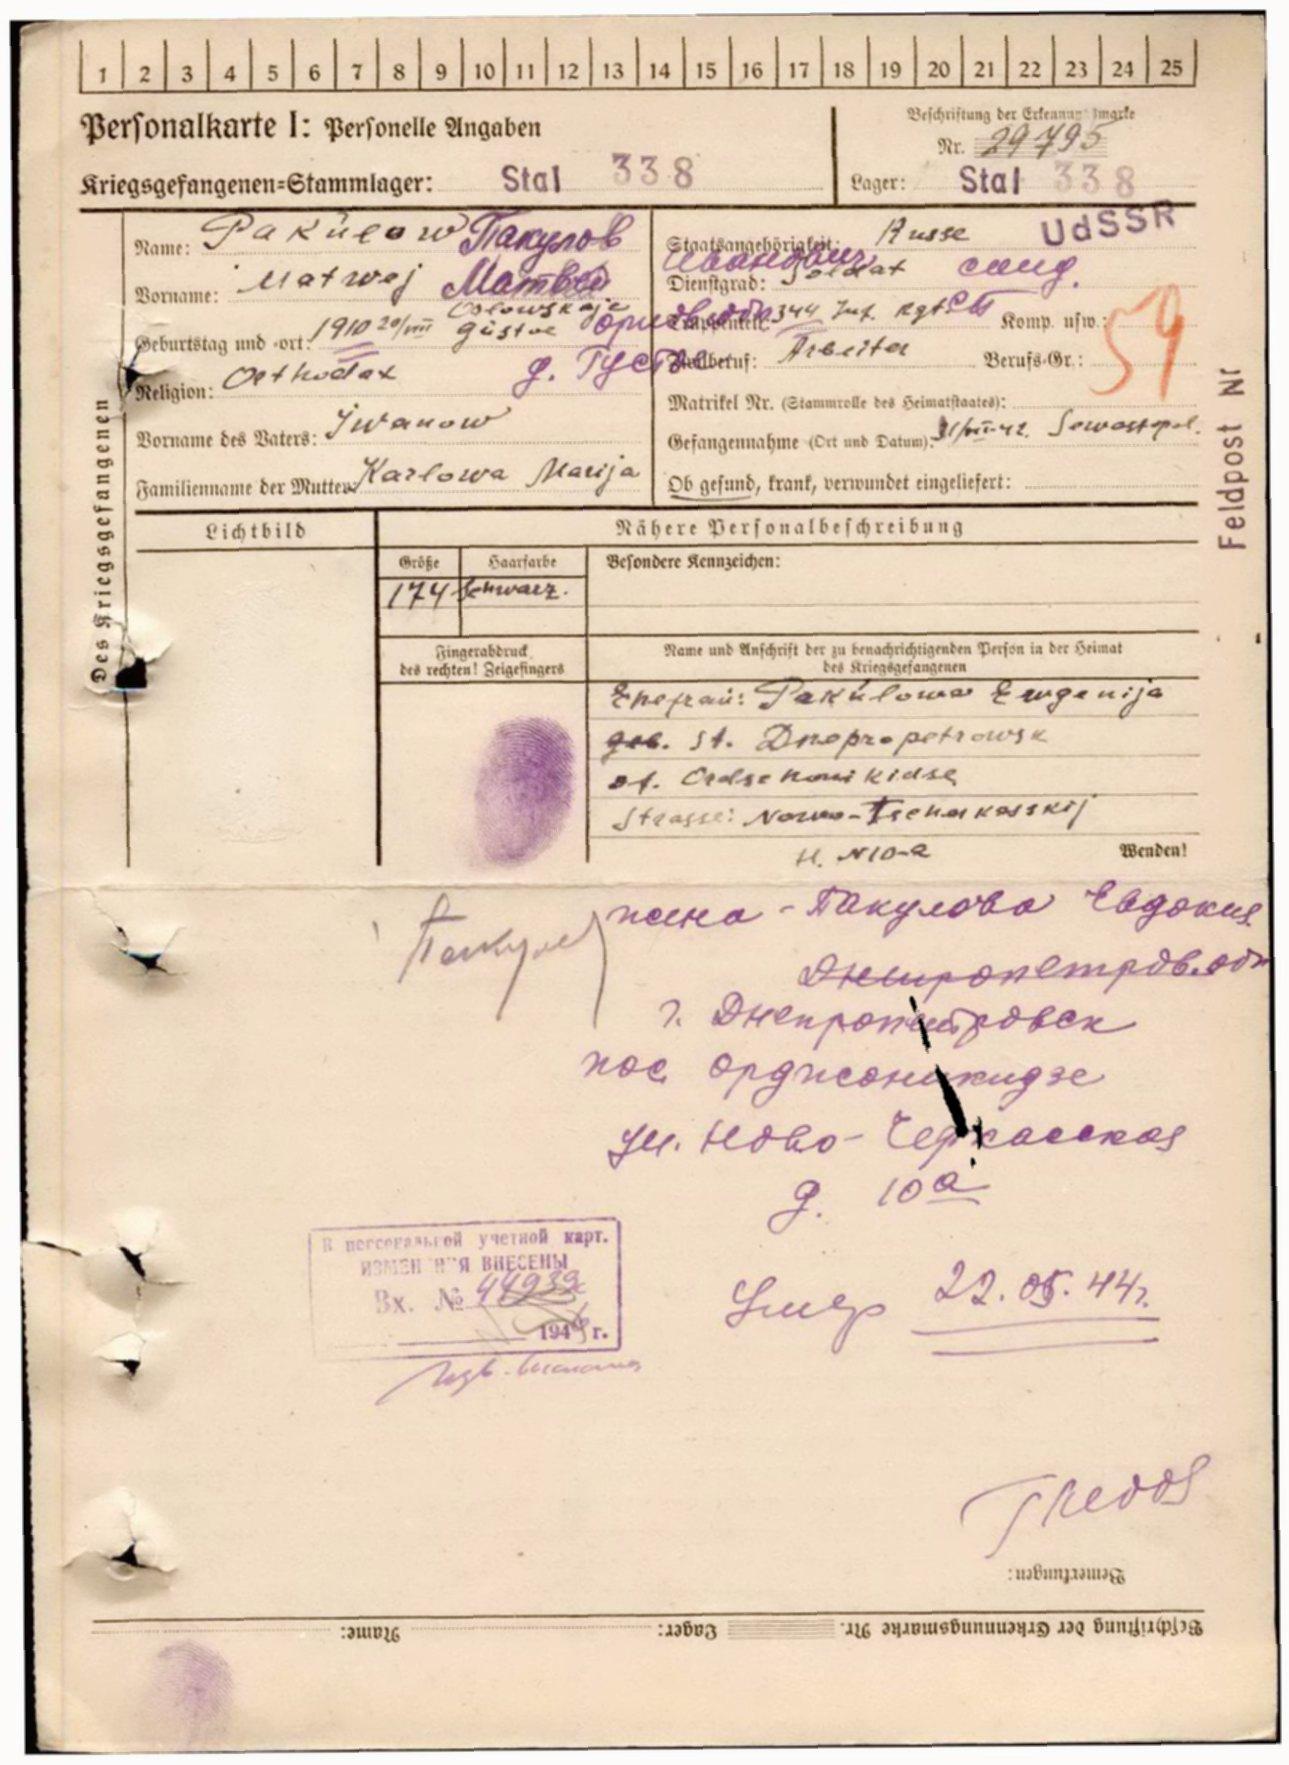 1 2 3 4 5 6 7 8 9 10 11 12 13 14 15 16 17 18 19 20 21 22 23 24 25
Personalkarte I: Personelle Angaben
Beschriftung der Erkennungsmarke
Nr. 29795
Kriegsgefangenen-Stammlager: Stal 338
Lager: Stal 338
Des Kriegsgefangenen
Name: Pakulow Пакулов
Vorname: Matwej Матвей
Orlowskaje
Geburtstag und -ort: 1910 20/VIII Gustoe
д. Густов
Religion: Orthodax
Vorname des Vaters: Iwanow
Familienname der Mutter: Karlowa Marija
Staatsangehörigkeit: Russe UdSSR
Иванович
Dienstgrad: Soldat солд.
344 Inf. Rgt. Komp. usw.:
59
Zivilberuf: Arbeiter Berufs-Gr.:
Matrikel Nr. (Stammrolle des Heimatstaates):
Gefangennahme (Ort und Datum): Sewastopol.
Ob gesund, krank, verwundet eingeliefert:
Feldpost Nr
Lichtbild
Nähere Personalbeschreibung
Größe Haarfarbe Besondere Kennzeichen:
174 Schwarz.
Fingerabdruck
des rechten! Zeigefingers
Name und Anschrift der zu benachrichtigenden Person in der Heimat
des Kriegsgefangenen
Ehefrau: Pakulowa Ewgenija
geb. St. Dnepropetrowsk
st. Ordschonikidse
Strasse: Nowo-Tscherkasskij
H. N10-a
Wenden!
жена - Пакулова Евдокия
Днепропетров. обл
г. Днепропетровск
пос. Орджоникидзе
ул. Ново-Черкасская
д. 10а
В персональной учетной карт.
ИЗМЕНЕНИЯ ВНЕСЕНЫ
Вх. №
194 г.
Умер 22.05.44г.
Bemerkungen:
Beschriftung der Erkennungsmarke Nr. Lager: Name: